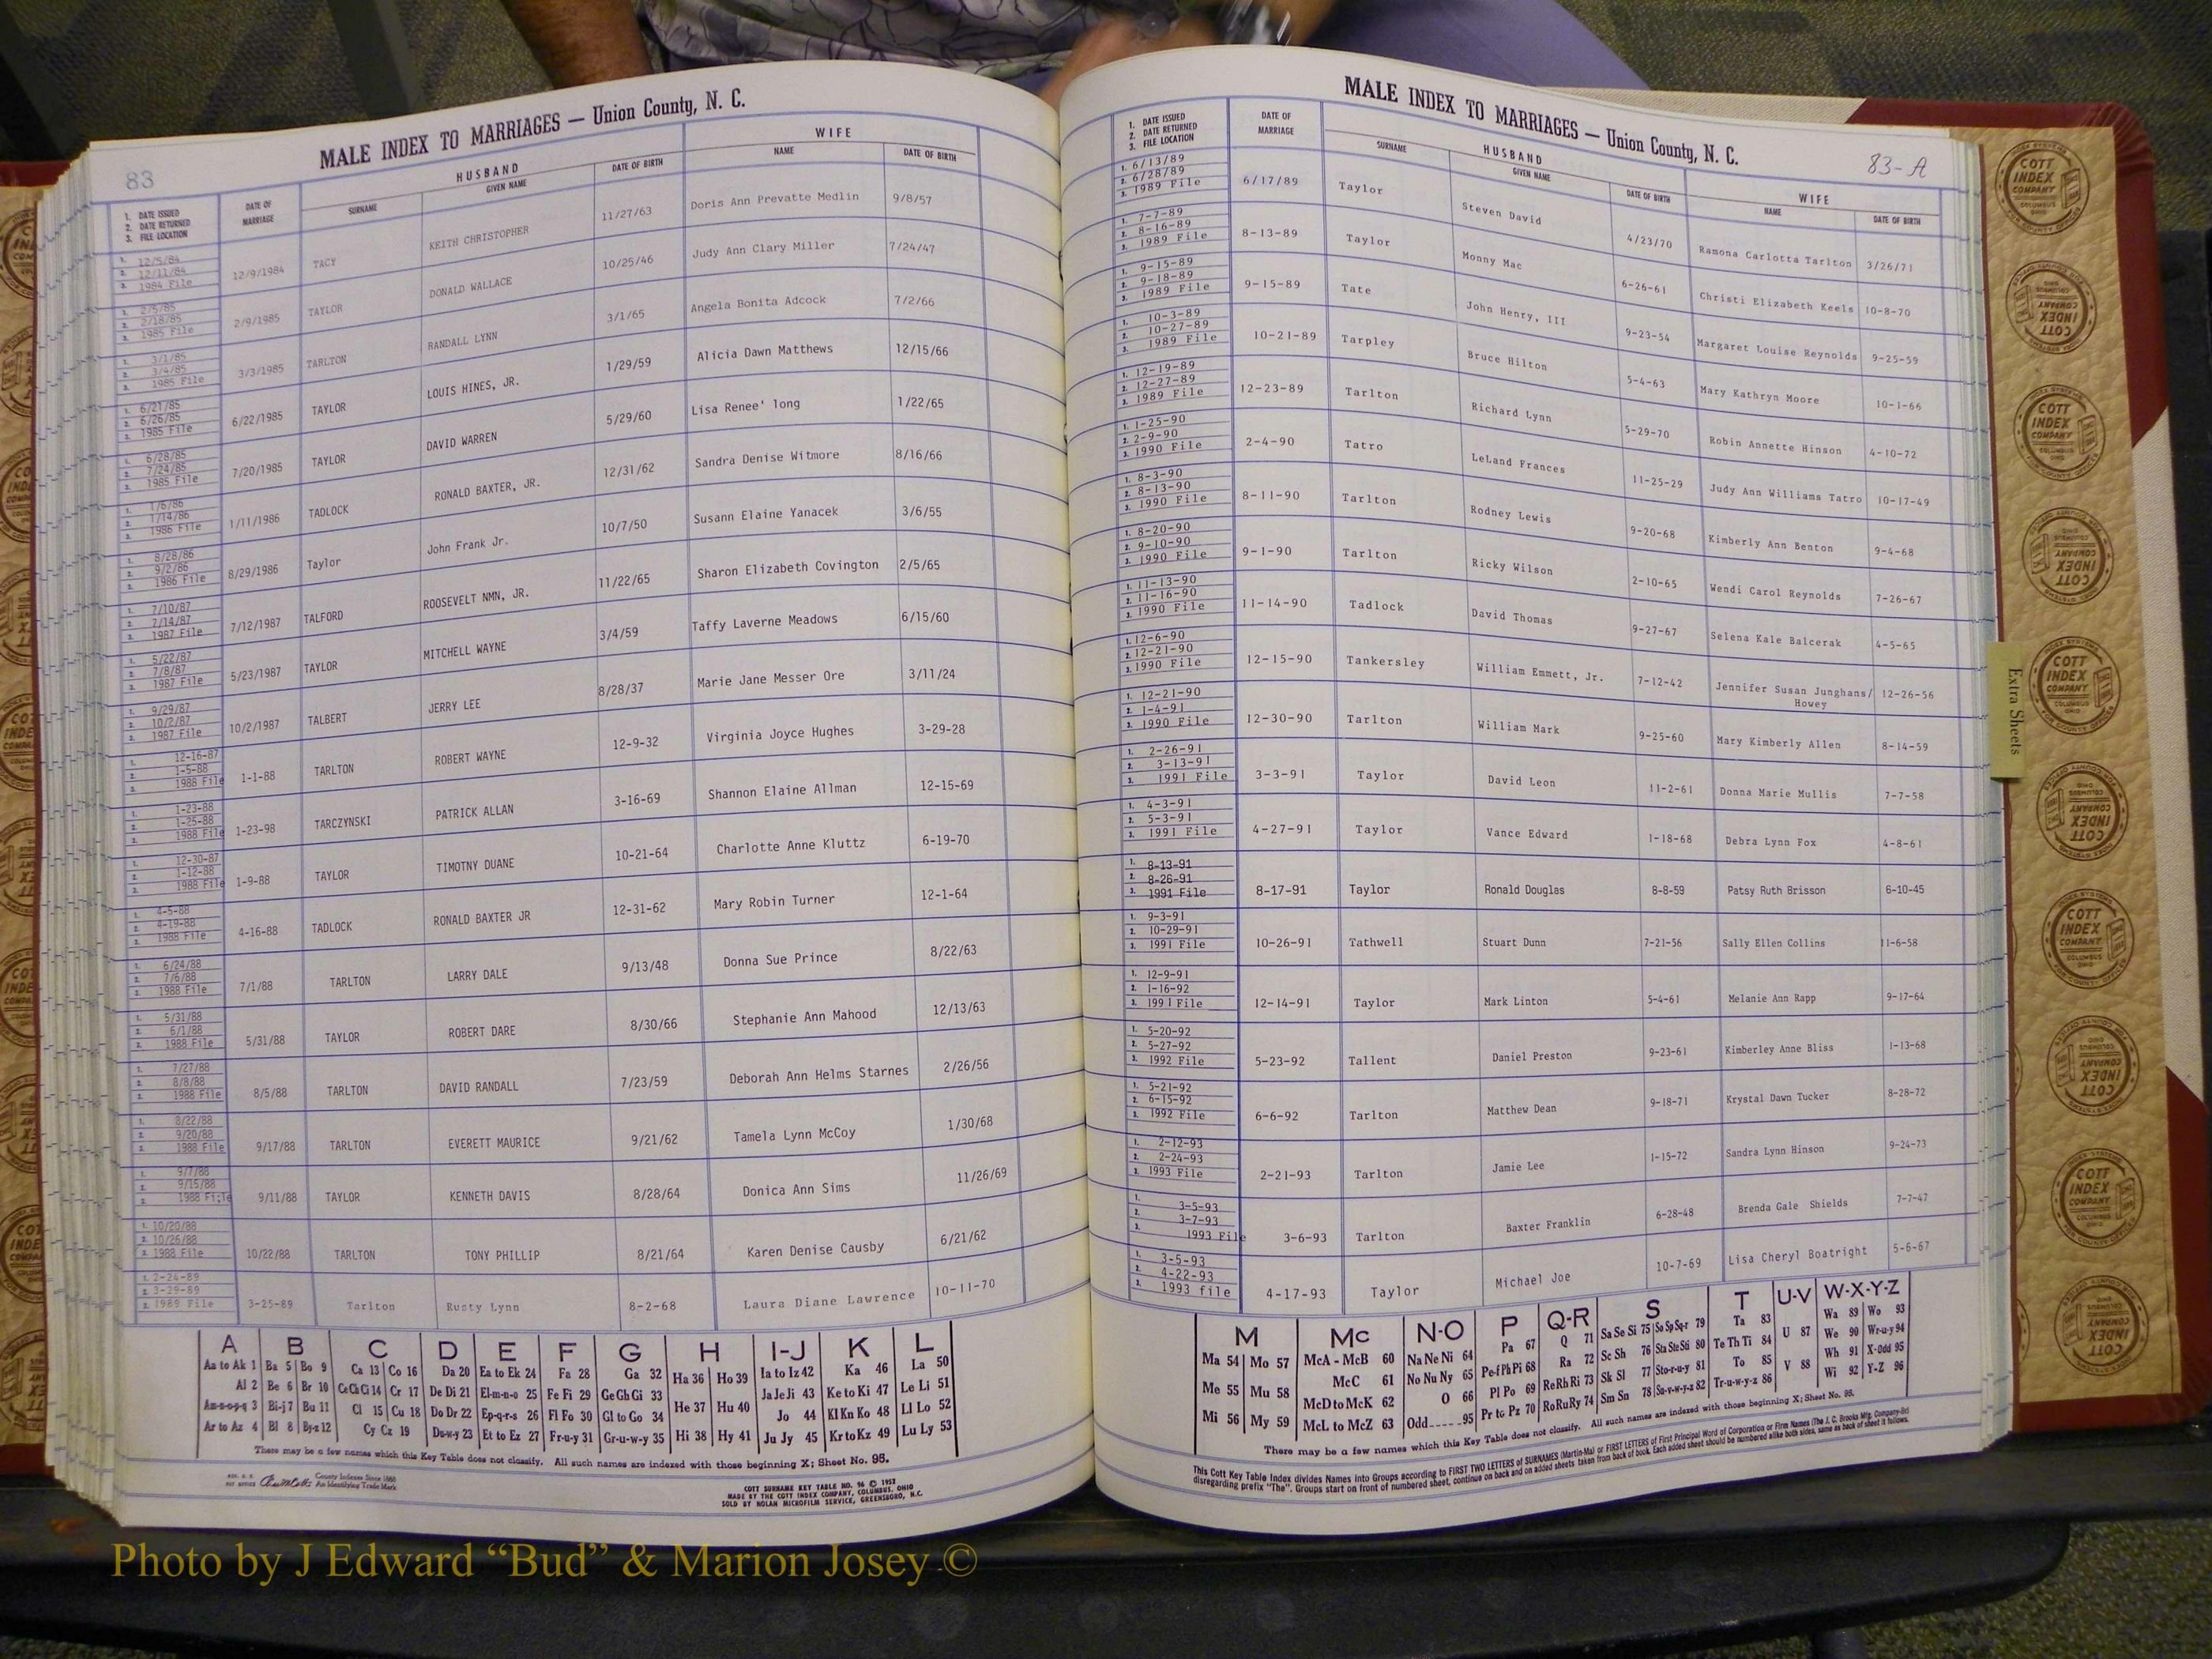 83
MALE INDEX TO MARRIAGES — Union County, N. C.
1. DATE ISSUED 2. DATE RETURNED 3. FILE LOCATION | DATE OF MARRIAGE | HUSBAND SURNAME | GIVEN NAME | DATE OF BIRTH | WIFE NAME | DATE OF BIRTH
1. 12/5/84 2. 12/11/84 3. 1984 File 12/9/1984 TACY KEITH CHRISTOPHER 11/27/63 Doris Ann Prevatte Medlin 9/8/57
1. 2/5/85 2. 2/18/85 3. 1985 File 2/9/1985 TAYLOR DONALD WALLACE 10/25/46 Judy Ann Clary Miller 7/24/47
1. 3/1/85 2. 3/4/85 3. 1985 File 3/3/1985 TARLTON RANDALL LYNN 3/1/65 Angela Bonita Adcock 7/2/66
1. 6/21/85 2. 6/26/85 3. 1985 File 6/22/1985 TAYLOR LOUIS HINES, JR. 1/29/59 Alicia Dawn Matthews 12/15/66
1. 6/28/85 2. 7/24/85 3. 1985 File 7/20/1985 TAYLOR DAVID WARREN 5/29/60 Lisa Renee' long 1/22/65
1. 1/6/86 2. 1/14/86 3. 1986 File 1/11/1986 TADLOCK RONALD BAXTER, JR. 12/31/62 Sandra Denise Witmore 8/16/66
1. 8/28/86 2. 9/2/86 3. 1986 File 8/29/1986 Taylor John Frank Jr. 10/7/50 Susann Elaine Yanacek 3/6/55
1. 7/10/87 2. 7/14/87 3. 1987 File 7/12/1987 TALFORD ROOSEVELT NMN, JR. 11/22/65 Sharon Elizabeth Covington 2/5/65
1. 5/22/87 2. 7/8/87 3. 1987 File 5/23/1987 TAYLOR MITCHELL WAYNE 3/4/59 Taffy Laverne Meadows 6/15/60
1. 9/29/87 2. 10/2/87 3. 1987 File 10/2/1987 TALBERT JERRY LEE 8/28/37 Marie Jane Messer Ore 3/11/24
1. 12-16-87 2. 1-5-88 3. 1988 File 1-1-88 TARLTON ROBERT WAYNE 12-9-32 Virginia Joyce Hughes 3-29-28
1. 1-23-88 2. 1-25-88 3. 1988 File 1-23-98 TARCZYNSKI PATRICK ALLAN 3-16-69 Shannon Elaine Allman 12-15-69
1. 12-30-87 2. 1-12-88 3. 1988 File 1-9-88 TAYLOR TIMOTNY DUANE 10-21-64 Charlotte Anne Kluttz 6-19-70
1. 4-5-88 2. 4-19-88 3. 1988 File 4-16-88 TADLOCK RONALD BAXTER JR 12-31-62 Mary Robin Turner 12-1-64
1. 6/24/88 2. 7/6/88 3. 1988 File 7/1/88 TARLTON LARRY DALE 9/13/48 Donna Sue Prince 8/22/63
1. 5/31/88 2. 6/1/88 3. 1988 File 5/31/88 TAYLOR ROBERT DARE 8/30/66 Stephanie Ann Mahood 12/13/63
1. 7/27/88 2. 8/8/88 3. 1988 File 8/5/88 TARLTON DAVID RANDALL 7/23/59 Deborah Ann Helms Starnes 2/26/56
1. 8/22/88 2. 9/20/88 3. 1988 File 9/17/88 TARLTON EVERETT MAURICE 9/21/62 Tamela Lynn McCoy 1/30/68
1. 9/7/88 2. 9/15/88 3. 1988 Fi;le 9/11/88 TAYLOR KENNETH DAVIS 8/28/64 Donica Ann Sims 11/26/69
1. 10/20/88 2. 10/26/88 3. 1988 File 10/22/88 TARLTON TONY PHILLIP 8/21/64 Karen Denise Causby 6/21/62
1. 2-24-89 2. 3-29-89 3. 1989 File 3-25-89 Tarlton Rusty Lynn 8-2-68 Laura Diane Lawrence 10-11-70
A B C D E F G H I-J K L
Aa to Ak 1 Ba 5 Bo 9 Ca 13 Co 16 Da 20 Ea to Ek 24 Fa 28 Ga 32 Ha 36 Ho 39 Ia to Iz 42 Ka 46 La 50
Al 2 Be 6 Br 10 Ce Ch Ci 14 Cr 17 De Di 21 El-m-n-o 25 Fe Fi 29 Ge Gh Gi 33 He 37 Hu 40 Ja Je Ji 43 Ke to Ki 47 Le Li 51
Am-n-o-p-q 3 Bi-j 7 Bu 11 Cl 15 Cu 18 Do Dr 22 Ep-q-r-s 26 Fl Fo 30 Gl to Go 34 Jo 44 Kl Kn Ko 48 Ll Lo 52
Ar to Az 4 Bl 8 By-z 12 Cy Cz 19 Du-w-y 23 Et to Ez 27 Fr-u-y 31 Gr-u-w-y 35 Hi 38 Hy 41 Ju Jy 45 Kr to Kz 49 Lu Ly 53
There may be a few names which this Key Table does not classify. All such names are indexed with those beginning X; Sheet No. 95.
County Indexes Since 1888
An Identifying Trade Mark
COTT SURNAME KEY TABLE NO. 96 © 1952
MADE BY THE COTT INDEX COMPANY, COLUMBUS, OHIO
SOLD BY NOLAN MICROFILM SERVICE, GREENSBORO, N.C.
MALE INDEX TO MARRIAGES — Union County, N. C.
83-A
1. DATE ISSUED 2. DATE RETURNED 3. FILE LOCATION | DATE OF MARRIAGE | HUSBAND SURNAME | GIVEN NAME | DATE OF BIRTH | WIFE NAME | DATE OF BIRTH
1. 6/13/89 2. 6/28/89 3. 1989 File 6/17/89 Taylor Steven David 4/23/70 Ramona Carlotta Tarlton 3/26/71
1. 7-7-89 2. 8-16-89 3. 1989 File 8-13-89 Taylor Monny Mac 6-26-61 Christi Elizabeth Keels 10-8-70
1. 9-15-89 2. 9-18-89 3. 1989 File 9-15-89 Tate John Henry, III 9-23-54 Margaret Louise Reynolds 9-25-59
1. 10-3-89 2. 10-27-89 3. 1989 File 10-21-89 Tarpley Bruce Hilton 5-4-63 Mary Kathryn Moore 10-1-66
1. 12-19-89 2. 12-27-89 3. 1989 File 12-23-89 Tarlton Richard Lynn 5-29-70 Robin Annette Hinson 4-10-72
1. 1-25-90 2. 2-9-90 3. 1990 File 2-4-90 Tatro LeLand Frances 11-25-29 Judy Ann Williams Tatro 10-17-49
1. 8-3-90 2. 8-13-90 3. 1990 File 8-11-90 Tarlton Rodney Lewis 9-20-68 Kimberly Ann Benton 9-4-68
1. 8-20-90 2. 9-10-90 3. 1990 File 9-1-90 Tarlton Ricky Wilson 2-10-65 Wendi Carol Reynolds 7-26-67
1. 11-13-90 2. 11-16-90 3. 1990 File 11-14-90 Tadlock David Thomas 9-27-67 Selena Kale Balcerak 4-5-65
1. 12-6-90 2. 12-21-90 3. 1990 File 12-15-90 Tankersley William Emmett, Jr. 7-12-42 Jennifer Susan Junghans/ Howey 12-26-56
1. 12-21-90 2. 1-4-91 3. 1990 File 12-30-90 Tarlton William Mark 9-25-60 Mary Kimberly Allen 8-14-59
1. 2-26-91 2. 3-13-91 3. 1991 File 3-3-91 Taylor David Leon 11-2-61 Donna Marie Mullis 7-7-58
1. 4-3-91 2. 5-3-91 3. 1991 File 4-27-91 Taylor Vance Edward 1-18-68 Debra Lynn Fox 4-8-61
1. 8-13-91 2. 8-26-91 3. 1991 File 8-17-91 Taylor Ronald Douglas 8-8-59 Patsy Ruth Brisson 6-10-45
1. 9-3-91 2. 10-29-91 3. 1991 File 10-26-91 Tathwell Stuart Dunn 7-21-56 Sally Ellen Collins 11-6-58
1. 12-9-91 2. 1-16-92 3. 1991 File 12-14-91 Taylor Mark Linton 5-4-61 Melanie Ann Rapp 9-17-64
1. 5-20-92 2. 5-27-92 3. 1992 File 5-23-92 Tallent Daniel Preston 9-23-61 Kimberley Anne Bliss 1-13-68
1. 5-21-92 2. 6-15-92 3. 1992 File 6-6-92 Tarlton Matthew Dean 9-18-71 Krystal Dawn Tucker 8-28-72
1. 2-12-93 2. 2-24-93 3. 1993 File 2-21-93 Tarlton Jamie Lee 1-15-72 Sandra Lynn Hinson 9-24-73
1. 3-5-93 2. 3-7-93 3. 1993 File 3-6-93 Tarlton Baxter Franklin 6-28-48 Brenda Gale Shields 7-7-47
1. 3-5-93 2. 4-22-93 3. 1993 file 4-17-93 Taylor Michael Joe 10-7-69 Lisa Cheryl Boatright 5-6-67
M Mc N-O P Q-R S T U-V W-X-Y-Z
Ma 54 Mo 57 McA - McB 60 Na Ne Ni 64 Pa 67 Q 71 Sa Se Si 75 So Sp Sq-r 79 Ta 83 U 87 Wa 89 Wo 93
Me 55 Mu 58 McC 61 No Nu Ny 65 Pe-f Ph Pi 68 Ra 72 Sc Sh 76 Sta Ste Sti 80 Te Th Ti 84 We 90 Wr-u-y 94
McD to McK 62 O 66 Pl Po 69 Re Rh Ri 73 Sk Sl 77 Sto-r-u-y 81 To 85 V 88 Wh 91 X-Odd 95
Mi 56 My 59 McL to McZ 63 Odd 95 Pr to Pz 70 Ro Ru Ry 74 Sm Sn 78 Su-v-w-y-z 82 Tr-u-w-y-z 86 Wi 92 Y-Z 96
There may be a few names which this Key Table does not classify. All such names are indexed with those beginning X; Sheet No. 95.
This Cott Key Table Index divides Names into Groups according to FIRST TWO LETTERS of SURNAMES (Martin-Ma) or FIRST LETTERS of First Principal Word of Corporation or Firm Names (The J. C. Brooks Mfg. Company-Br)
disregarding prefix "The". Groups start on front of numbered sheet, continue on back and on added sheets taken from back of book. Each added sheet should be numbered alike both sides, same as back of sheet it follows.
Extra Sheets
COTT INDEX COMPANY COLUMBUS OHIO
Photo by J Edward “Bud” & Marion Josey ©